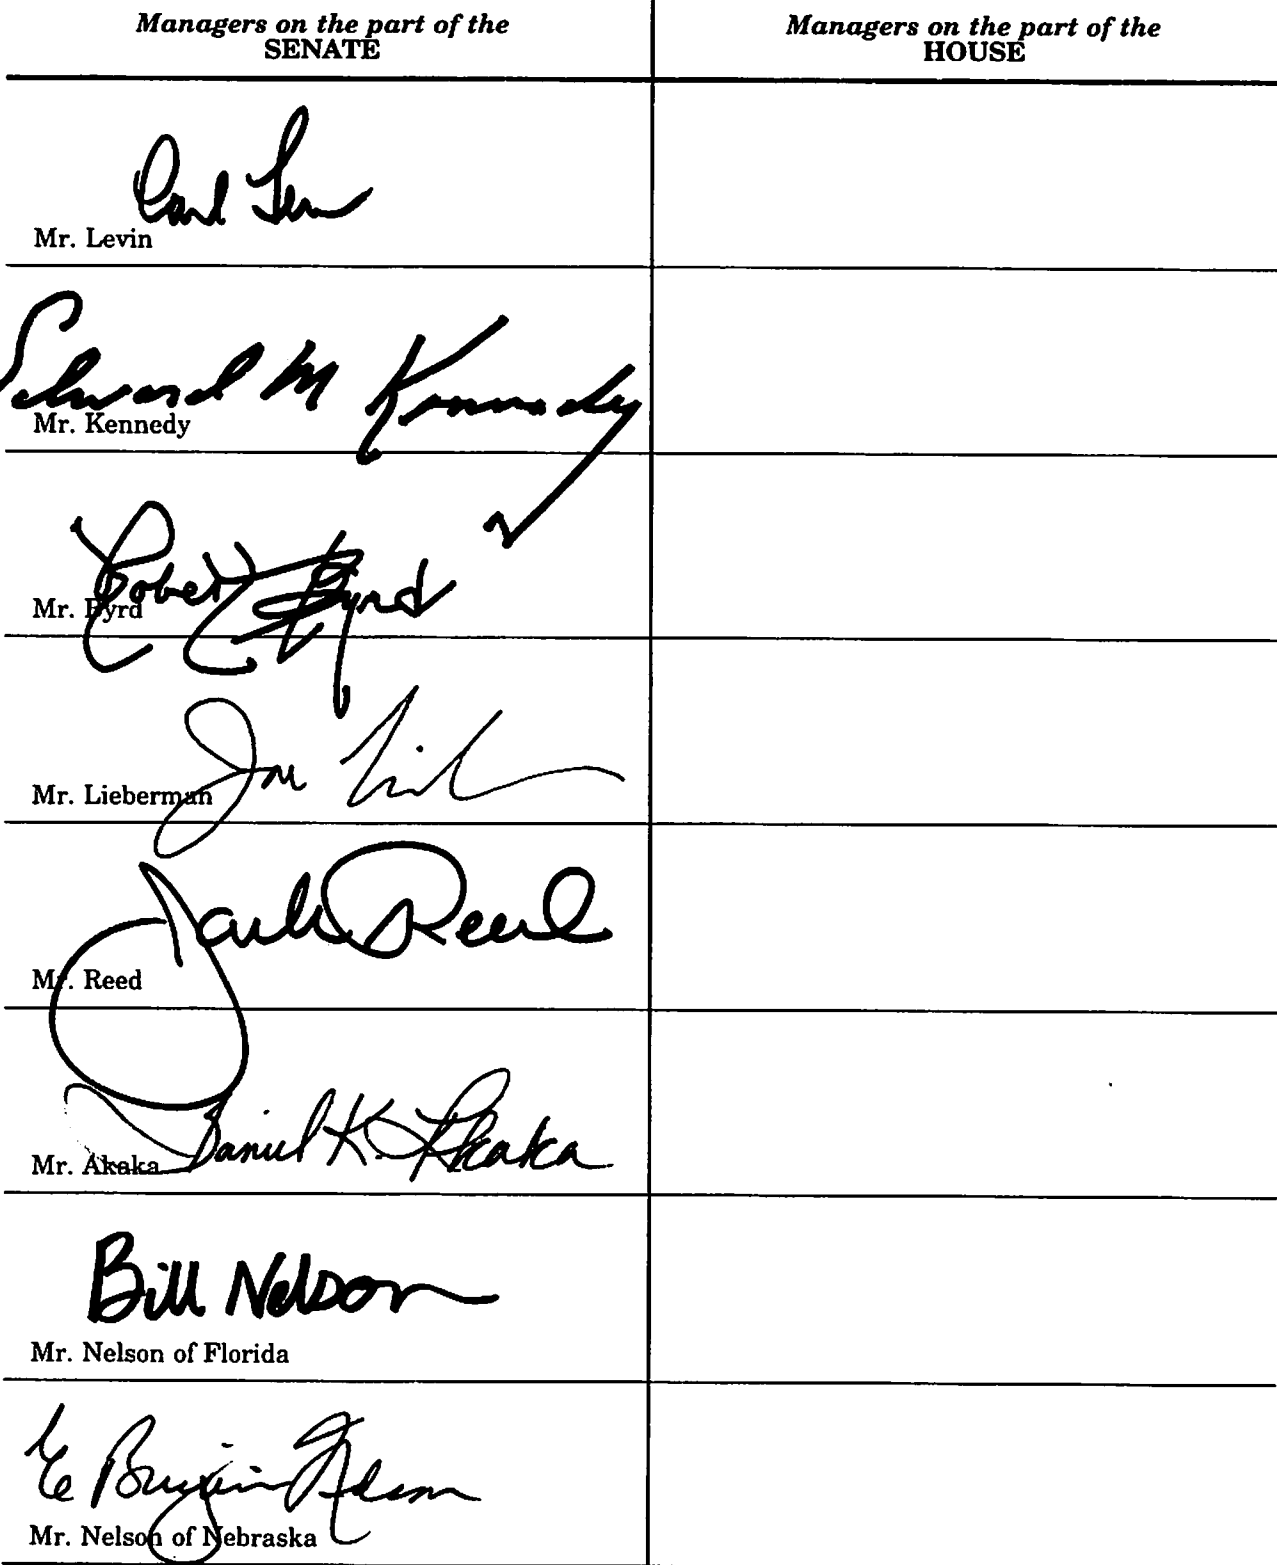 Managers on the part of the
SENATE
Managers on the part of the
HOUSE
Carl Levin
Mr. Levin
Edward M Kennedy
Mr. Kennedy
Robert C. Byrd
Mr. Byrd
Joe
Mr. Lieberman
Jack Reed
Mr. Reed
Daniel K. Akaka
Mr. Akaka
Bill Nelson
Mr. Nelson of Florida
E Benjamin Nelson
Mr. Nelson of Nebraska